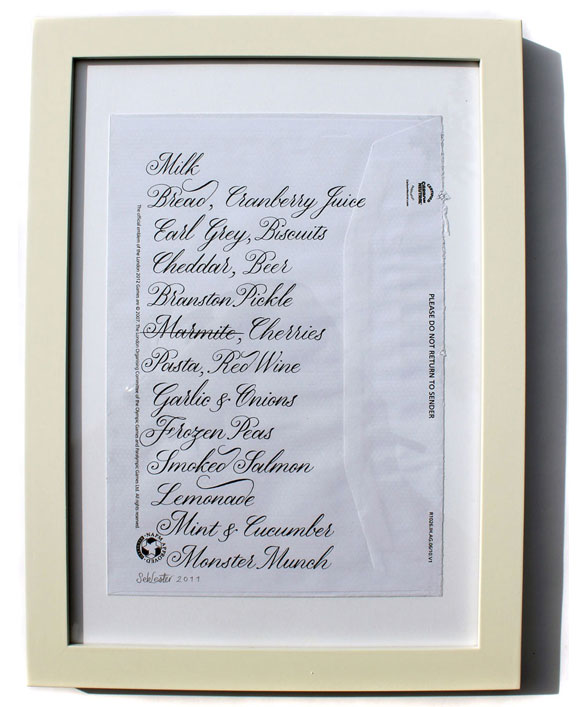 Milk
Bread, Cranberry Juice
Earl Grey, Biscuits
Cheddar, Beer
Branston Pickle
Marmite, Cherries
Pasta, Red Wine
Garlic & Onions
Frozen Peas
Smoked Salmon
Lemonade
Mint & Cucumber
Monster Munch
Seb Lester 2011
The official emblem of the London 2012 Games are © 2007. The London Organising Committee of the Olympic Games and Paralympic Games Ltd. All rights reserved.
PLEASE DO NOT RETURN TO SENDER